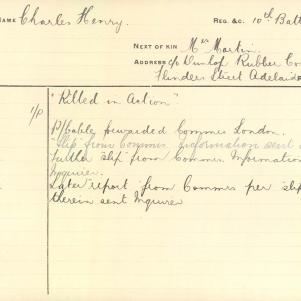 NAME Charles Henry. REG. &C. 10th Batt
NEXT OF KIN Mrs Martin.
ADDRESS c/o Dunlop Rubber Co
Flinders Street Adelaide
1/p "Killed in Action"
Cable forwarded Commrs London.
"Slip from Commrs. Information sent
further slip from Commrs Information
Inquirer.
Later report from Commrs per slip
therein sent Inquirer